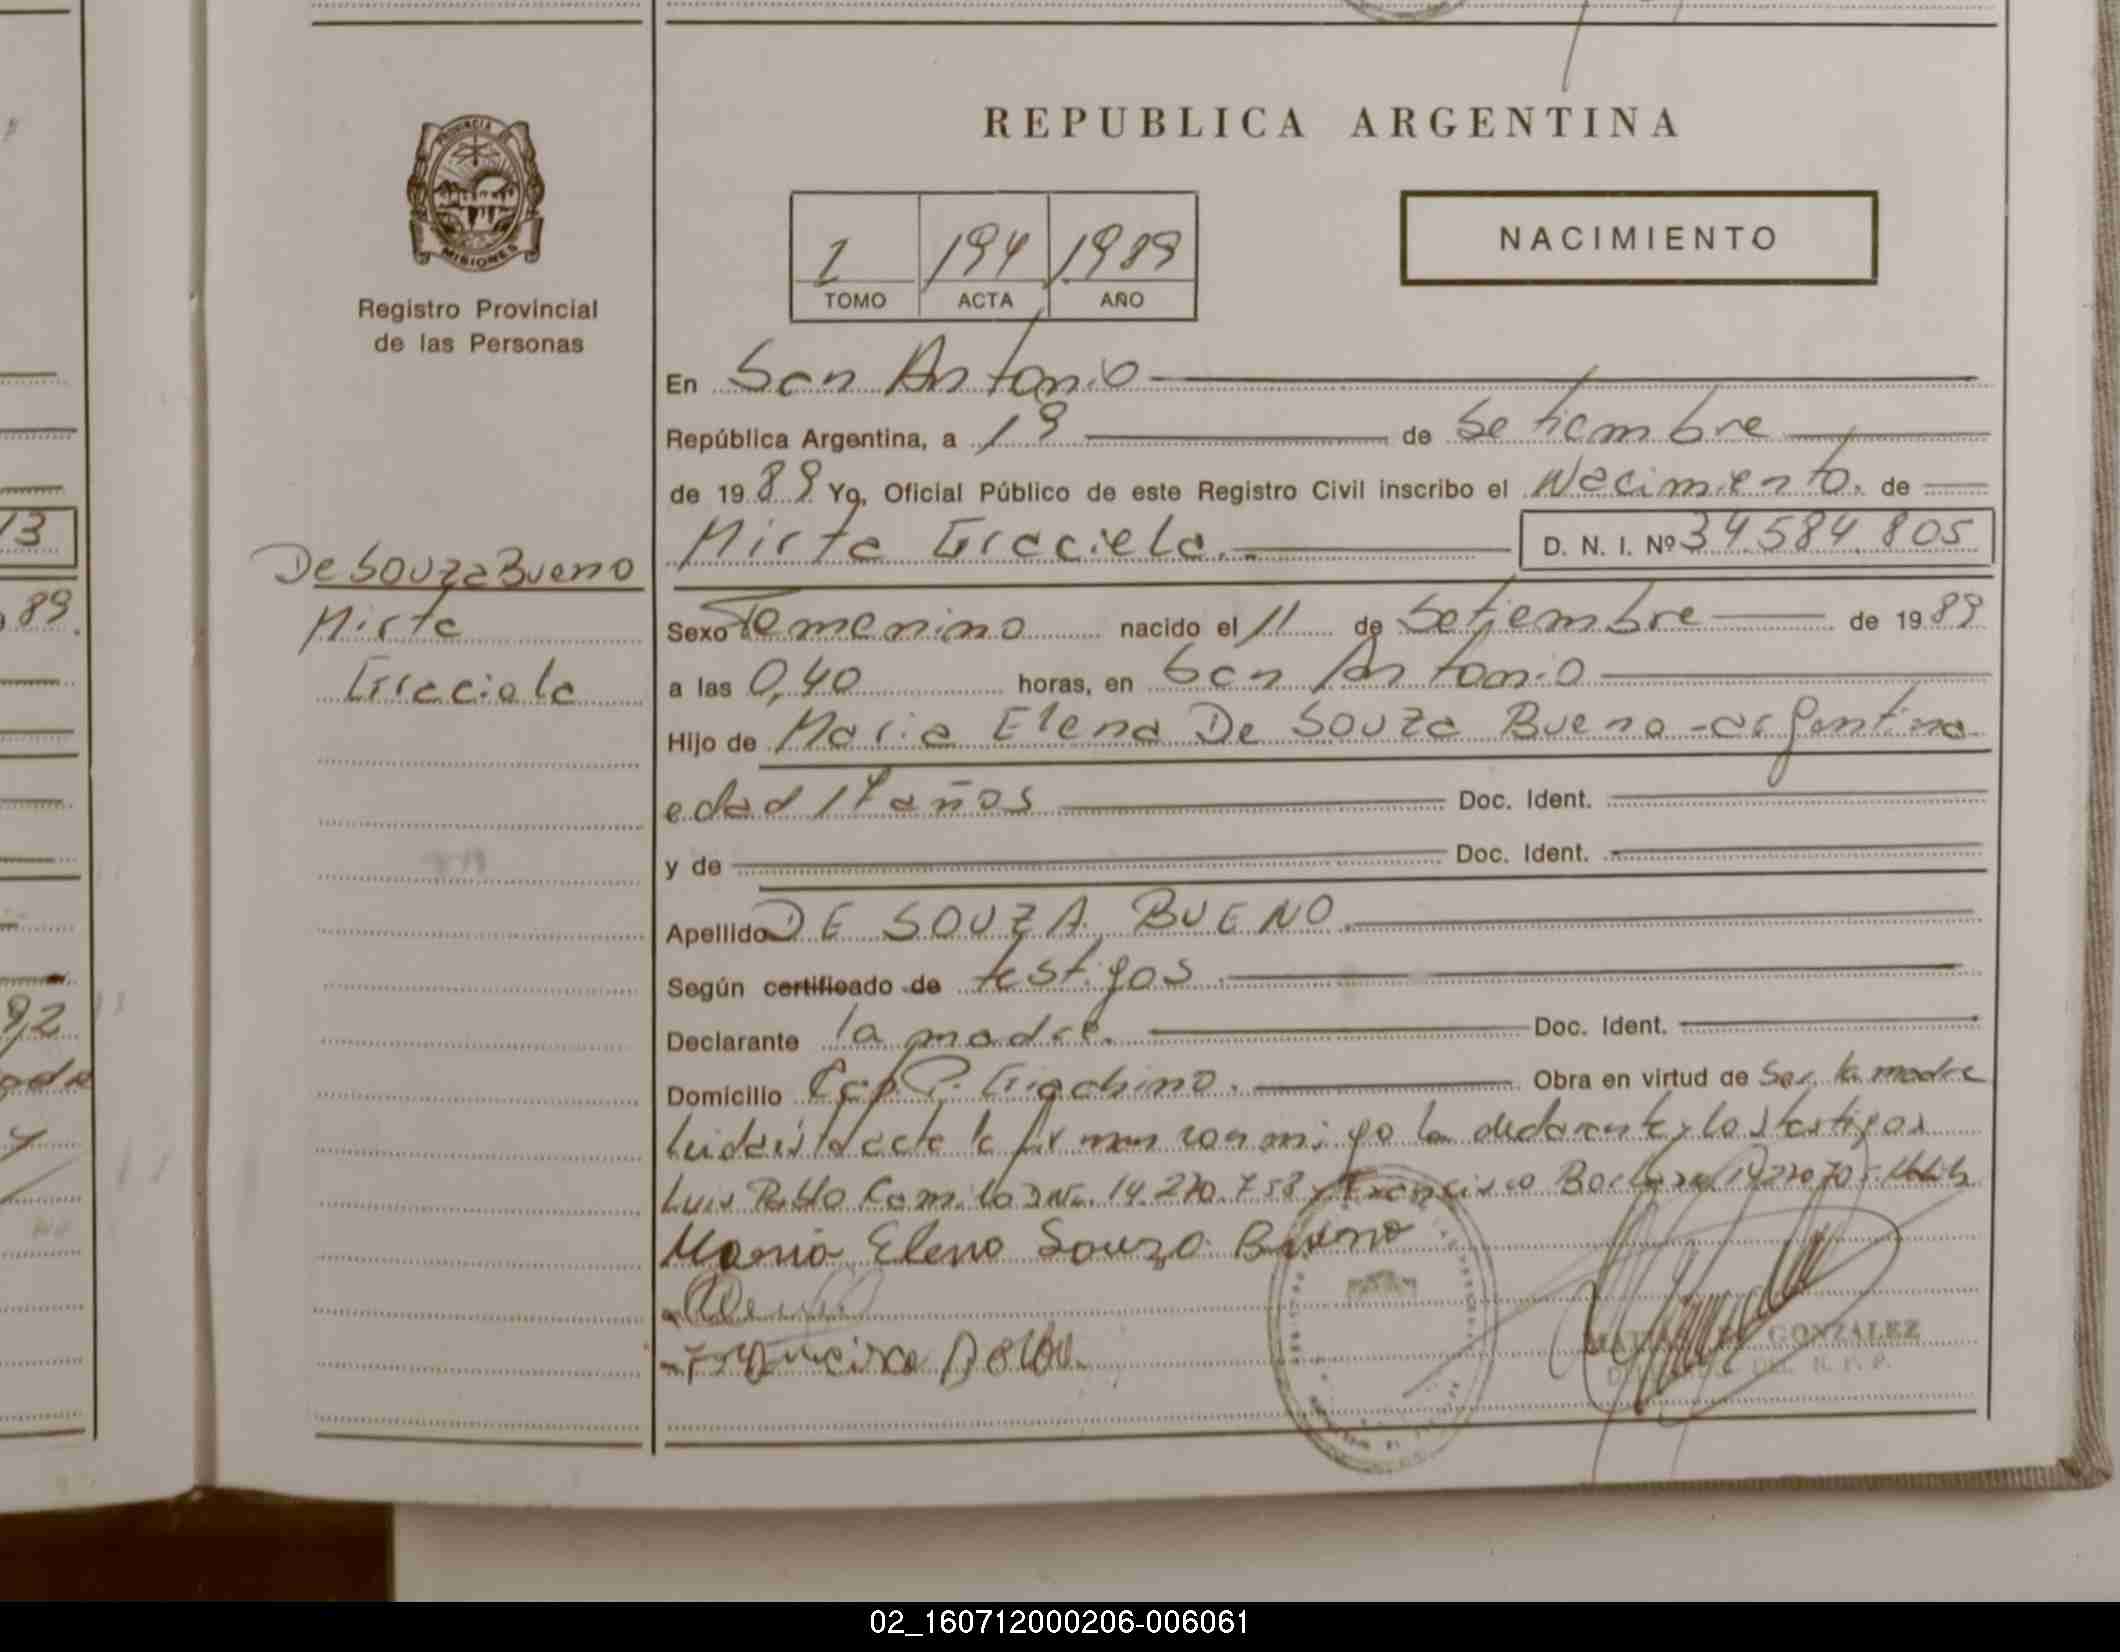 REPUBLICA ARGENTINA
PROVINCIA DE
MISIONES
Registro Provincial
de las Personas
1 194 1989
TOMO ACTA AÑO
NACIMIENTO
En San Antonio
República Argentina, a 19 de Setiembre
de 1989 Yo, Oficial Público de este Registro Civil inscribo el Nacimiento de
Mirta Graciela. D. N. I. Nº 34.584.805
De Souza Bueno
Mirta
Graciela
Sexo Femenino nacido el 11 de Setiembre de 1989
a las 0,40 horas, en San Antonio
Hijo de Maria Elena De Souza Bueno - argentina
edad 17 años Doc. Ident.
y de Doc. Ident.
Apellido DE SOUZA BUENO
Según certificado de testigos
Declarante la madre. Doc. Ident.
Domicilio Cap. P. Giachino. Obra en virtud de Ser la madre
Leida esta acta la firman conmigo la declarante y los testigos
Luis Pablo Camilo DNI. 14.270.758 y Francisco
Maria Elena Souza Bueno
Francisco
GONZALEZ
13
89.
92
02_160712000206-006061